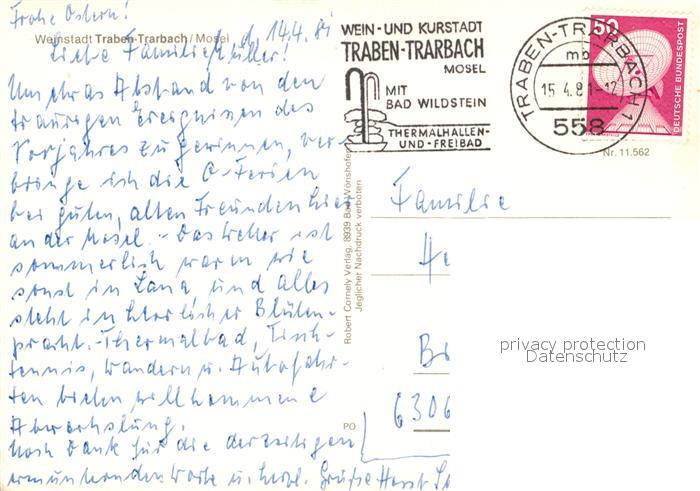 Frohe Ostern!
d. 14.4.81
Weinstadt Traben-Trarbach/Mosel
Liebe Familie Müller!
Um etwas Abstand von den
traurigen Ereignissen des
Vorjahres zu gewinnen, ver-
bringe ich die O-Ferien
bei guten, alten Freunden hier
an der Mosel. - Das Wetter ist
sommerlich warm wie
sonst in Lana und alles
steht in herrlicher Blüten-
pracht. - Thermalbad, Tisch-
tennis, Wandern u. Autofahr-
ten bieten willkommene
Abwechslung.
Noch Dank für die derzeitigen
ermunternden Worte u. herzl. Grüße Horst
WEIN- UND KURSTADT
TRABEN-TRARBACH
MOSEL
MIT
BAD WILDSTEIN
THERMALHALLEN-
UND-FREIBAD
TRABEN-TRARBACH 1
mb
15.4.81-12
558
50
DEUTSCHE BUNDESPOST
Nr. 11.562
Robert Cornely Verlag, 8939 Bad Wörishofen
Jeglicher Nachdruck verboten
PO
Familie
He
6306
privacy protection
Datenschutz